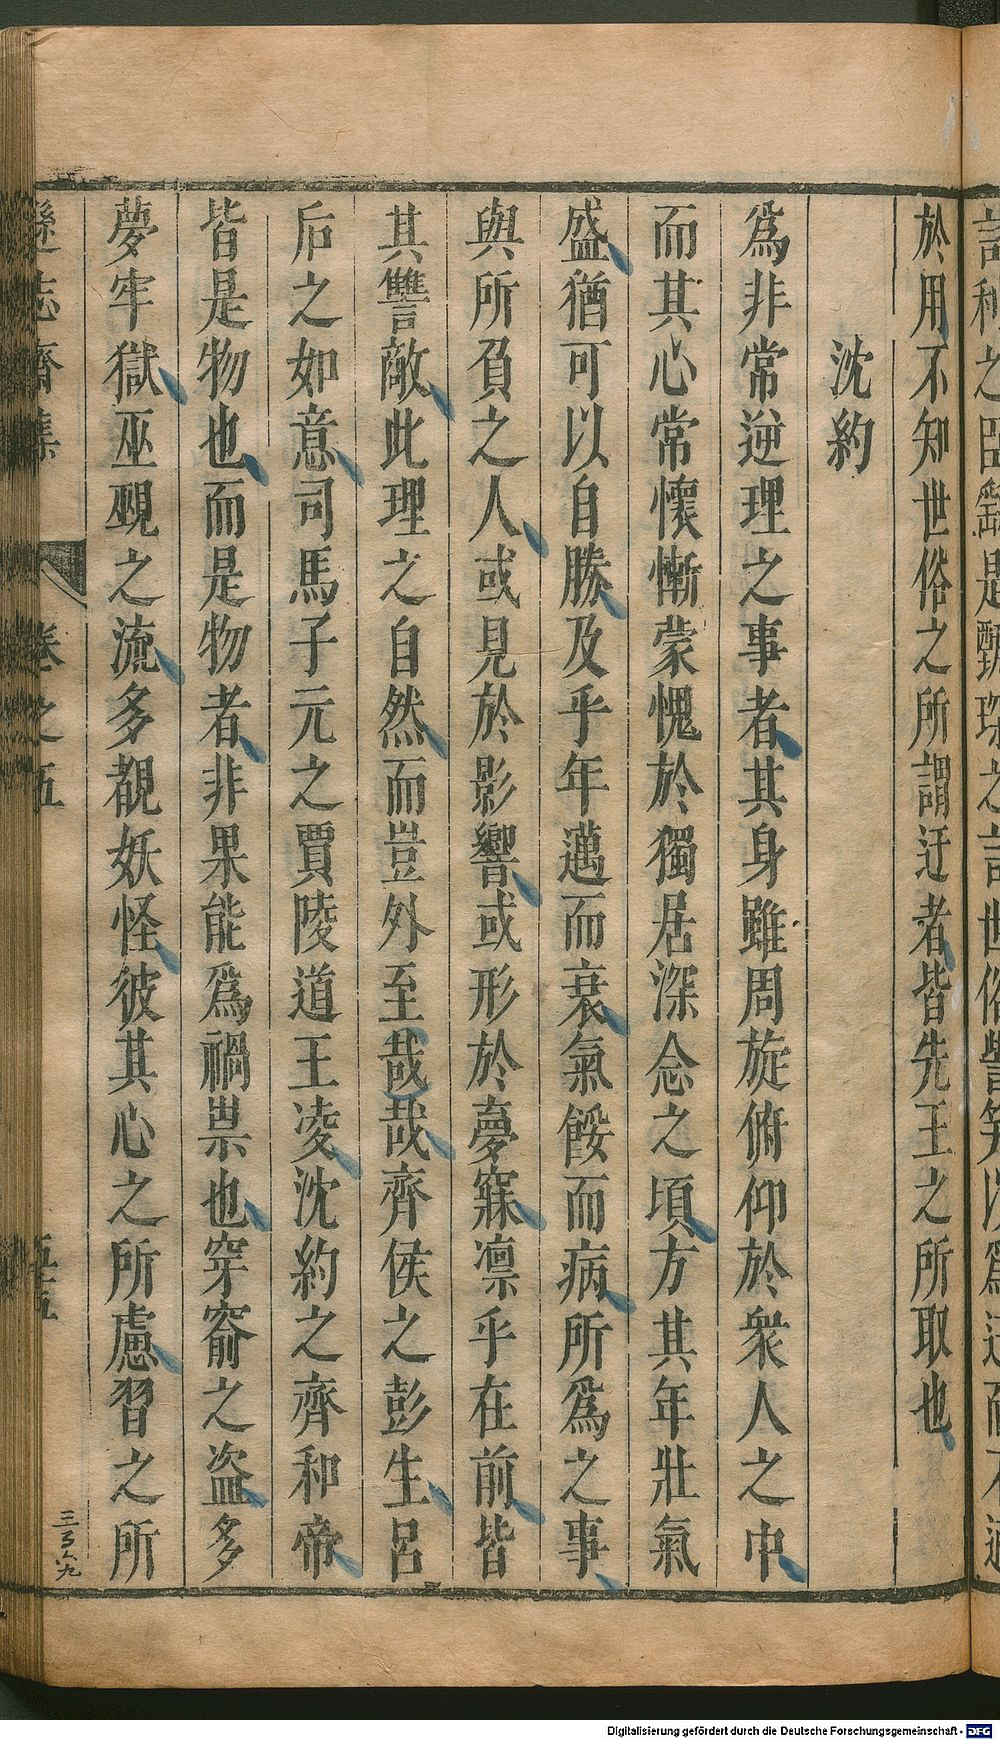 於用不知世俗之所謂迂者皆先王之所取也
沈約
爲非常逆理之事者其身雖周旋俯仰於衆人之中
而其心常懷慚蒙愧於獨居深念之頃方其年壯氣
盛猶可以自勝及乎年邁而衰氣餒而病所爲之事
與所負之人或見於影響或形於夢寐凛乎在前皆
其讐敵此理之自然而豈外至哉哉齊侯之彭生呂
后之如意司馬子元之賈陵道王凌沈約之齊和帝
皆是物也而是物者非果能爲禍祟也穿窬之盗多
夢牢獄巫覡之流多覩妖怪彼其心之所慮習之所
遜志齋集 卷之五 五五
三百六九
Digitalisierung gefördert durch die Deutsche Forschungsgemeinschaft - DFG